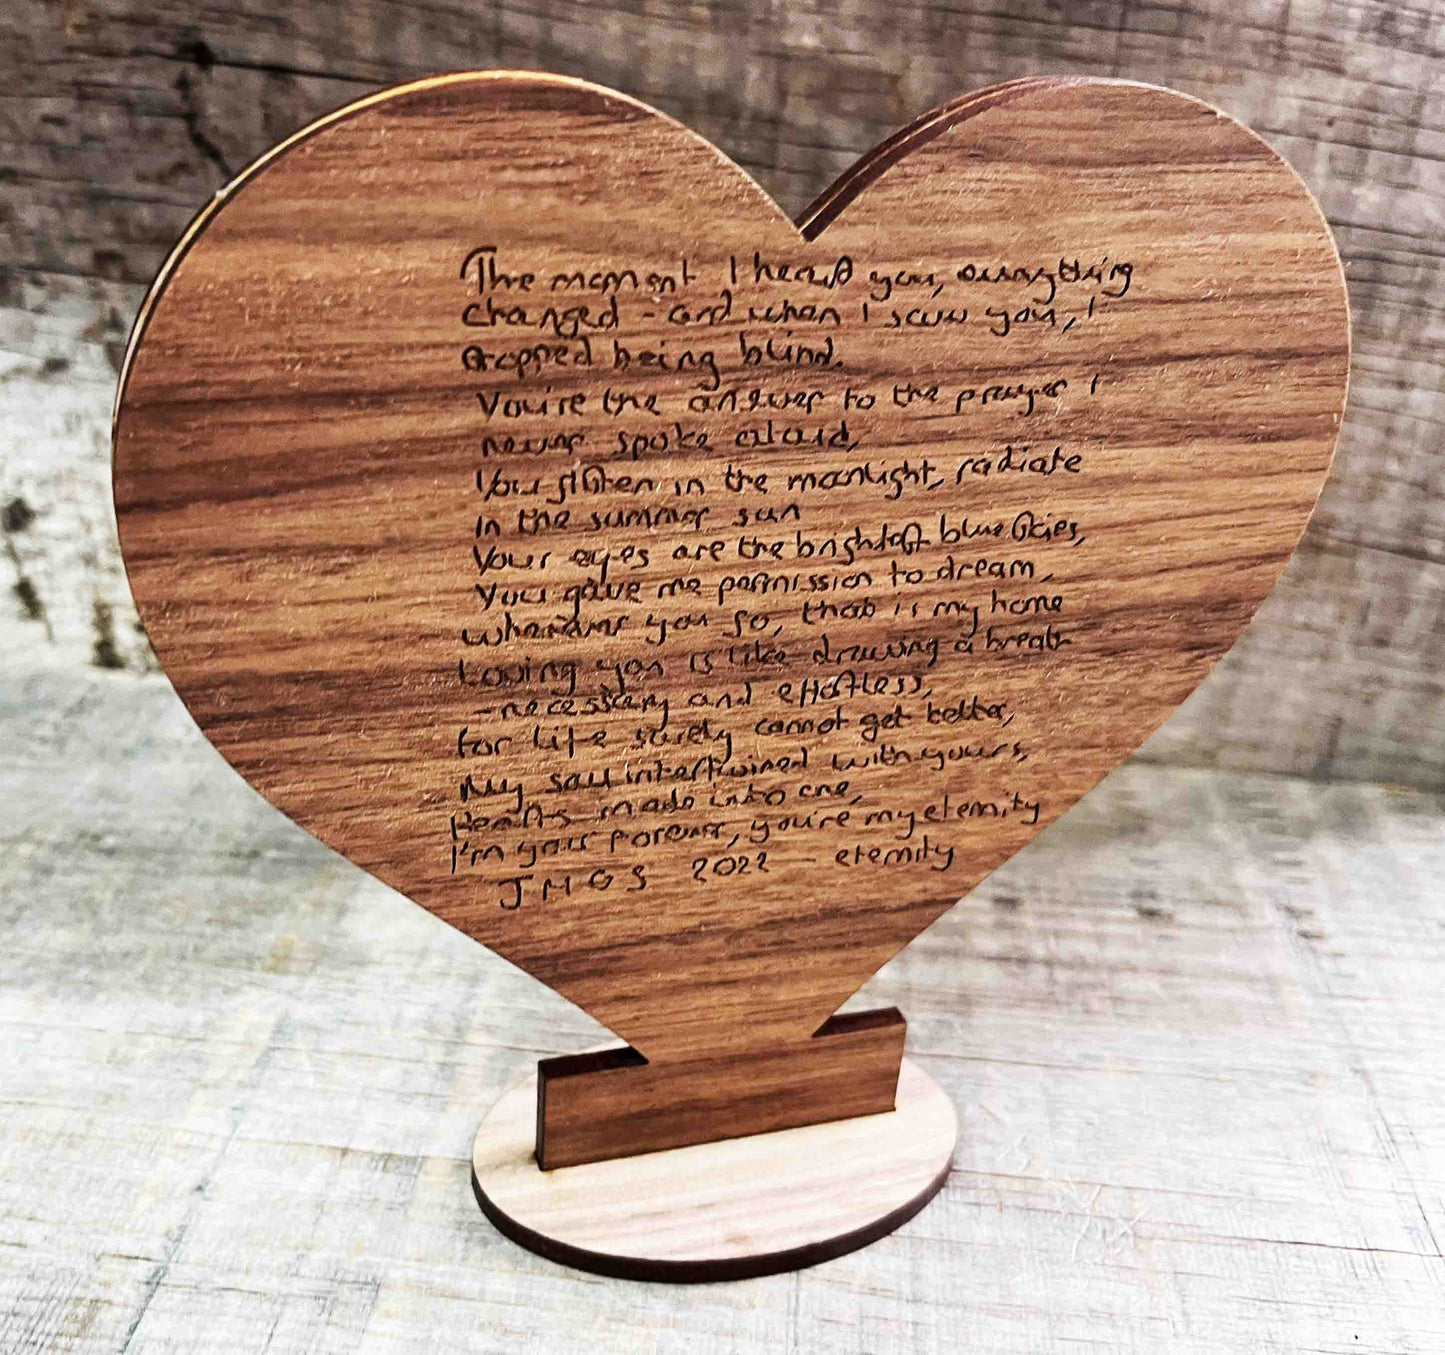 The moment I heard you, everything
changed - and when I saw you, I
stopped being blind.
You're the answer to the prayer I
never spoke aloud,
You glisten in the moonlight, radiate
in the summer sun
Your eyes are the brightest blue skies,
You gave me permission to dream,
wherever you go, that is my home
Loving you is like drawing a breath
- necessary and effortless,
for life surely cannot get better,
My soul intertwined with yours,
Hearts made into one,
I'm your forever, you're my eternity
JMGS 2022 - eternity